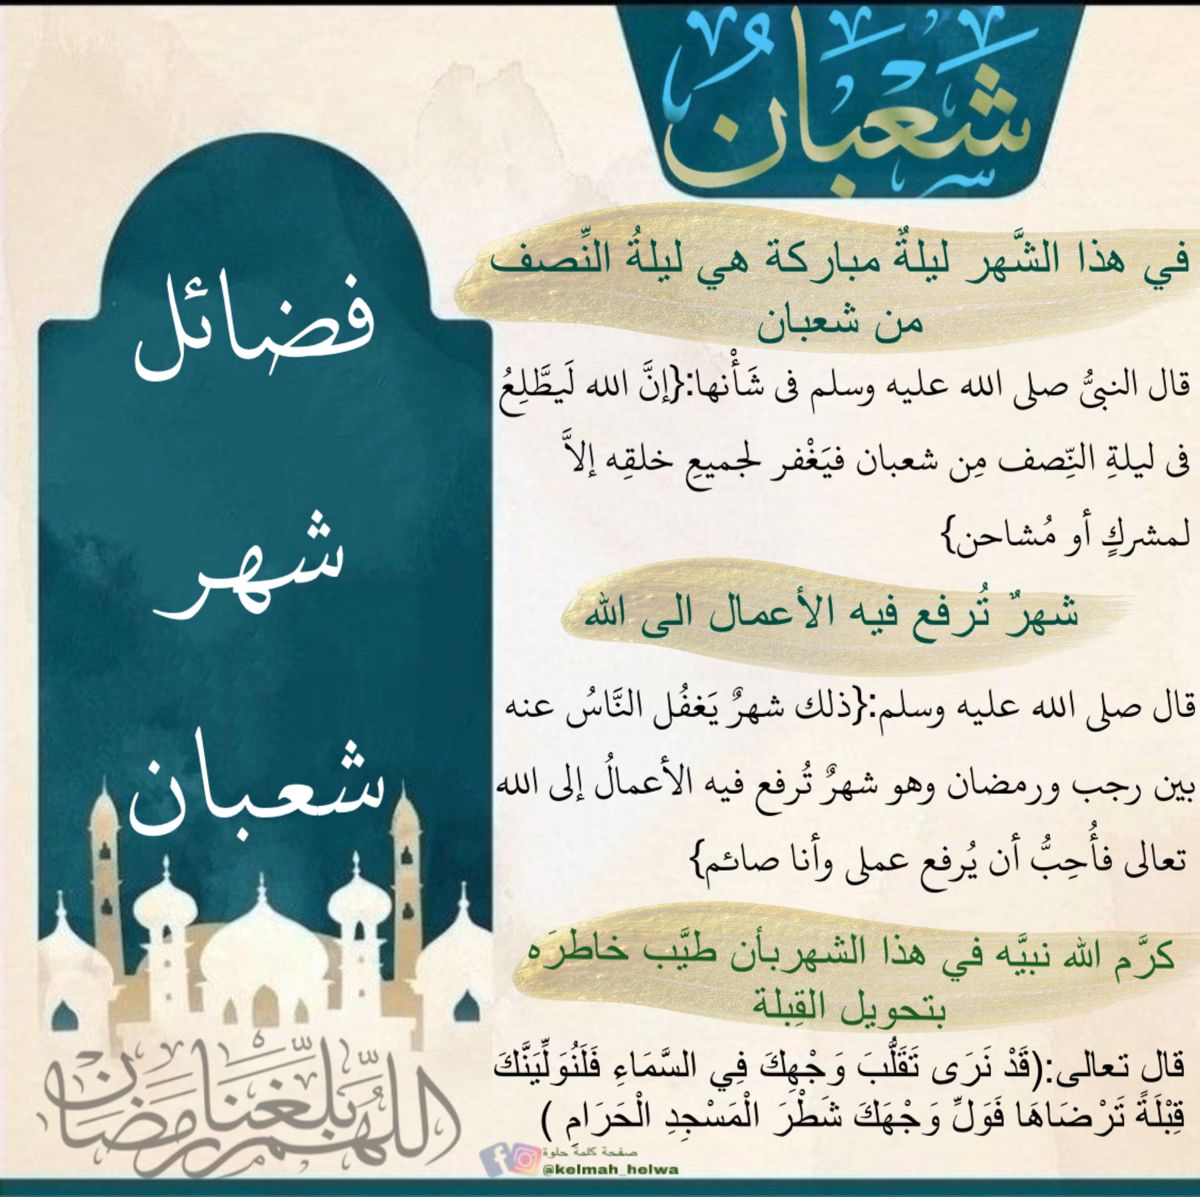 شَعْبَانُ
في هذا الشَّهر ليلةٌ مباركة هي ليلةُ النِّصف
من شعبان
قال النبىُّ صلى الله عليه وسلم فى شَأْنها:{إنَّ الله لَيطَّلِعُ
فى ليلةِ النِّصف مِن شعبان فيَغْفر لجميعِ خلقِه إلاَّ
لمشركٍ أو مُشاحن}
شهرٌ تُرفع فيه الأعمال الى الله
قال صلى الله عليه وسلم:{ذلك شهرٌ يَغفُل النَّاسُ عنه
بين رجب ورمضان وهو شهرٌ تُرفع فيه الأعمالُ إلى الله
تعالى فأُحِبُّ أن يُرفع عملى وأنا صائم}
كرَّم الله نبيَّه في هذا الشهربأن طيَّب خاطرَه
بتحويل القِبلة
قال تعالى:(قَدْ نَرَى تَقَلُّبَ وَجْهِكَ فِي السَّمَاءِ فَلَنُوَلِّيَنَّكَ
قِبْلَةً تَرْضَاهَا فَوَلِّ وَجْهَكَ شَطْرَ الْمَسْجِدِ الْحَرَامِ )
فضائل
شهر
شعبان
اللهم بلغنا رمضان
صفحة كلمة حلوة
@kelmah_helwa